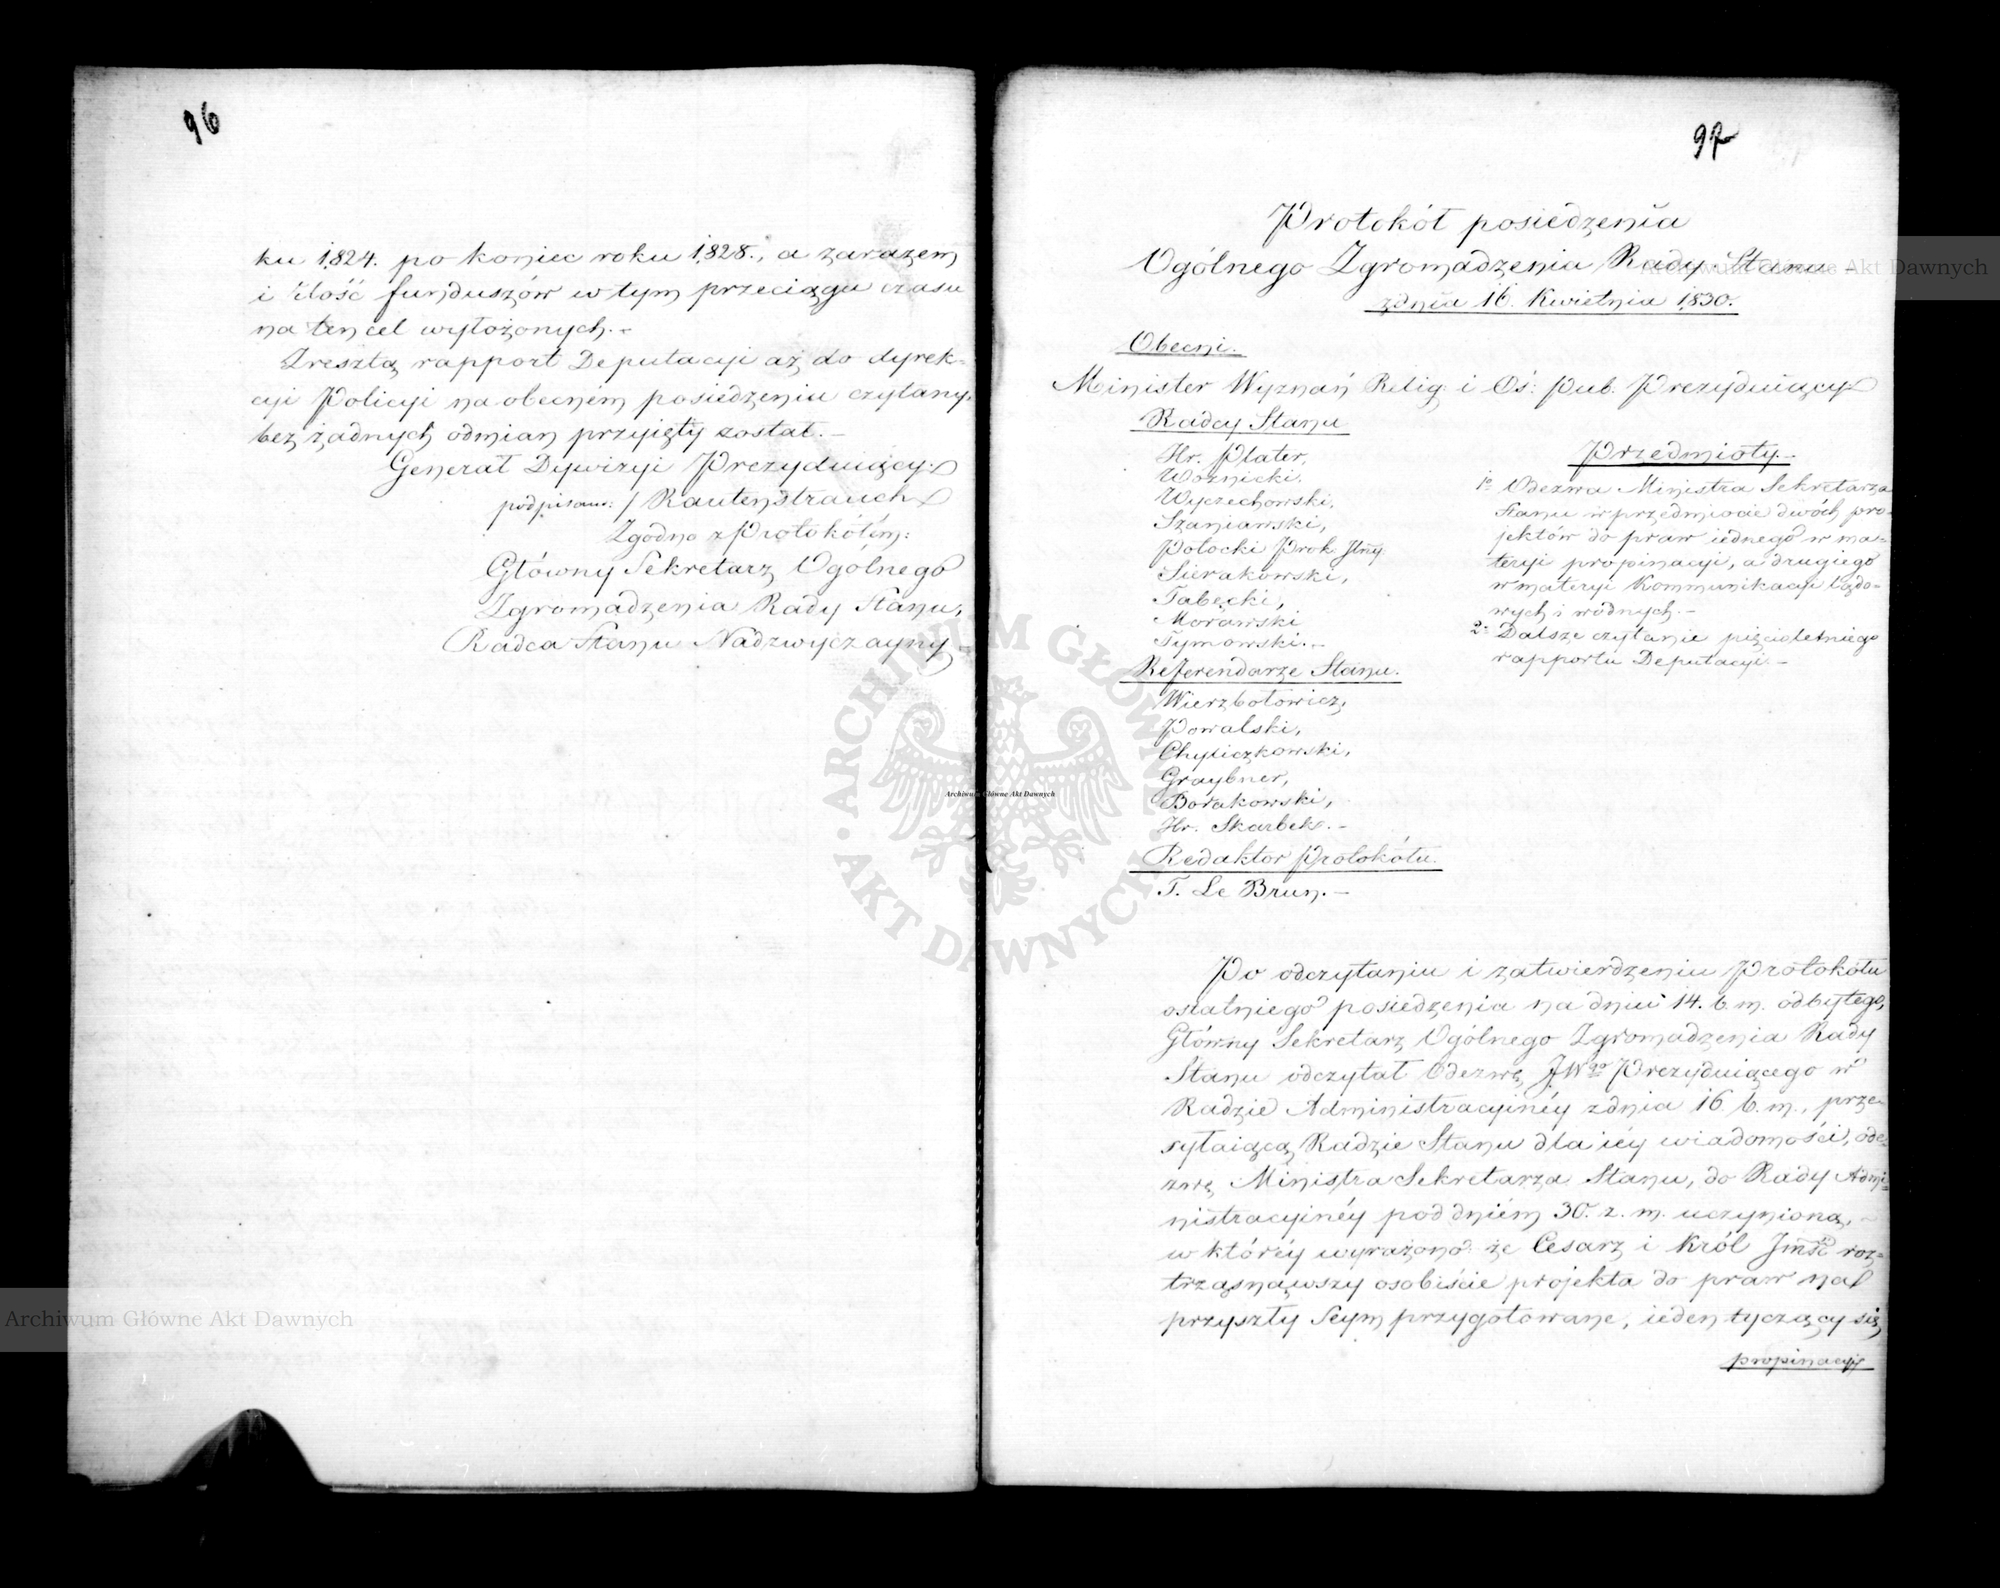 96
ku 1824. po koniec roku 1828., a zarazem
i ilość funduszów w tym przeciągu czasu
na ten cel wyłożonych.-
Zresztą rapport Deputacyi aż do dyrek-
cyi Policyi na obecném posiedzeniu czytany,
bez żadnych odmian przyięty został.-
Generał Dywizyi Prezyduiący
podpisano: / Rautenstrauch
Zgodno z Protokółem:
Główny Sekretarz Ogólnego
Zgromadzenia Rady Stanu,
Radca Stanu Nadzwyczayny
97
Protokół posiedzenia
Ogólnego Zgromadzenia Rady Stanu
z dnia 16. Kwietnia 1830.
Obecni.
Minister Wyznań Relig: i Oś: Pub. Prezyduiący
Radcy Stanu
Hr. Plater,
Woźnicki.
Wyczechowski,
Szaniawski,
Potocki Prok. Jlny
Sierakowski,
Tabęcki,
Morawski
Tymowski.-
Referendarze Stanu.
Wierzbołowicz,
Powalski,
Chyliczkowski,
Graybner,
Borakowski,
Hr. Skarbek.-
Redaktor Protokółu.
T. Le Brun.-
Przedmioty.-
1o Odezwa Ministra Sekretarza
Stanu w przedmiocie dwóch pro-
jektów do praw iednego w ma-
teryi propinacyi, a drugiego
w materyi Kommunikacyi lądo-
wych i wodnych.-
2o Dalsze czytanie pięcioletniego
rapportu Deputacyi.-
Po odczytaniu i zatwierdzeniu Protokółu
ostatniego posiedzenia na dniu 14. b. m. odbytego,
Główny Sekretarz Ogólnego Zgromadzenia Rady
Stanu odczytał Odezwę JWgo Prezyduiącego w
Radzie Administracyinéy z dnia 16. b. m., prze-
syłaiącą Radzie Stanu dla iéy wiadomości, ode-
zwę Ministra Sekretarza Stanu, do Rady Admi-
nistracyinéy pod dniém 30. z. m. uczynioną,-
w któréy wyrażono że Cesarz i Król Jmść roz-
trząsnąwszy osobiście projekta do praw na
przyszły Seym przygotowane, ieden tyczący się
propinacyi
Archiwum Główne Akt Dawnych
Archiwum Główne Akt Dawnych
Archiwum Główne Akt Dawnych
ARCHIWUM GŁÓWNE AKT DAWNYCH